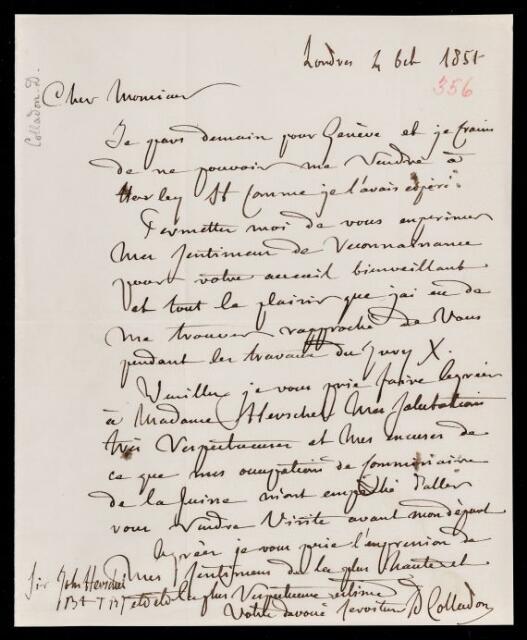 Londres 4 Oct 1851
356
Colladon. D.
Cher Monsieur
Je pars demain pour Genève et je Crains
de ne pouvoir me Rendre à
Harley St Comme je l'avais espéré.
Permettez moi de vous exprimer
Mes Sentimens de Reconnaissance
pour votre accueil bienveillant
et tout le plaisir que j'ai eu de
me trouver rapproché de Vous
pendant les travaux du Jury X.
Veuillez je vous prie faire agréer
à Madame Herschel Mes Salutations
très Respectueuses et Mes excuses de
ce que mes occupations de Commissaire
de la Suisse m'ont empêché d'aller
vous Rendre Visite avant mon départ
Agréer je vous prie l'expression de
Mes Sentimens de la plus haute et
et de la plus Respectueuse estime
Votre dévoué Serviteur D Colladon
Sir John Herschel